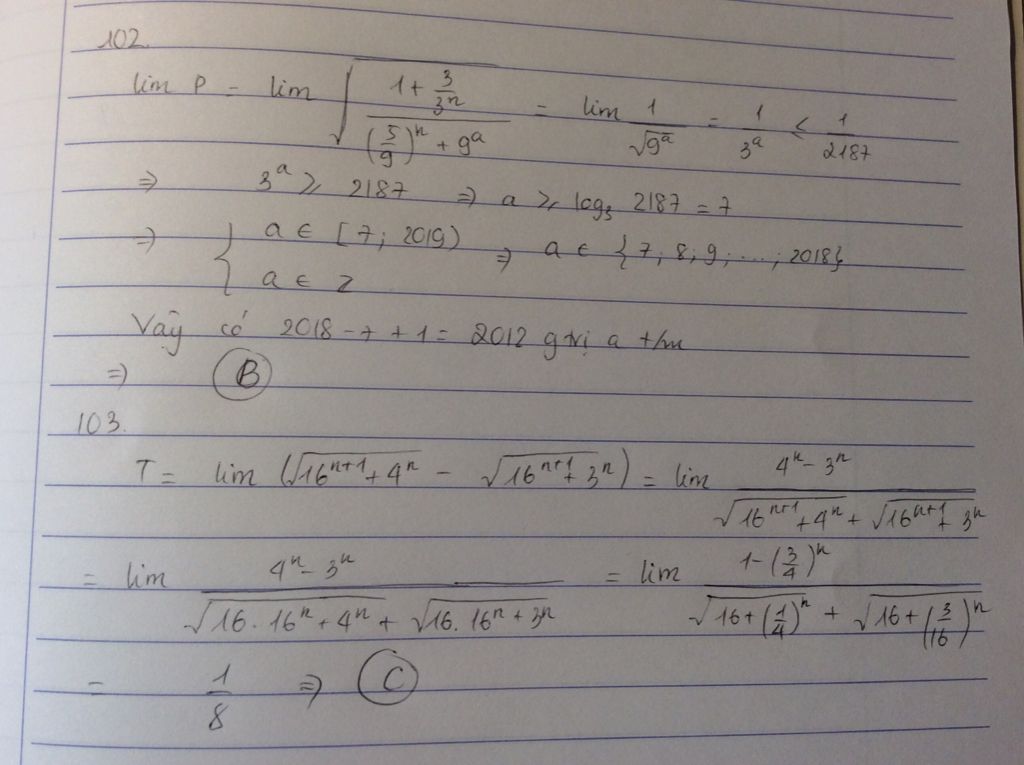 102.
lim P = lim √((1 + 3/3ⁿ)/((5/9)ⁿ + 9ᵃ)) = lim 1/√9ᵃ = 1/3ᵃ ≤ 1/2187
⇒ 3ᵃ ≥ 2187 ⇒ a ≥ log₃ 2187 = 7
⇒ { a ∈ [7; 2019) ⇒ a ∈ {7; 8; 9; ...; 2018}
a ∈ Z
Vậy có 2018 - 7 + 1 = 2012 gtrị a t/m
⇒ B
103.
T = lim (√(16ⁿ⁺¹ + 4ⁿ) - √(16ⁿ⁺¹ + 3ⁿ)) = lim (4ⁿ - 3ⁿ)/(√(16ⁿ⁺¹ + 4ⁿ) + √(16ⁿ⁺¹ + 3ⁿ))
= lim (4ⁿ - 3ⁿ)/(√(16 . 16ⁿ + 4ⁿ) + √(16 . 16ⁿ + 3ⁿ)) = lim (1 - (3/4)ⁿ)/(√(16 + (1/4)ⁿ) + √(16 + (3/16)ⁿ))
= 1/8 ⇒ C